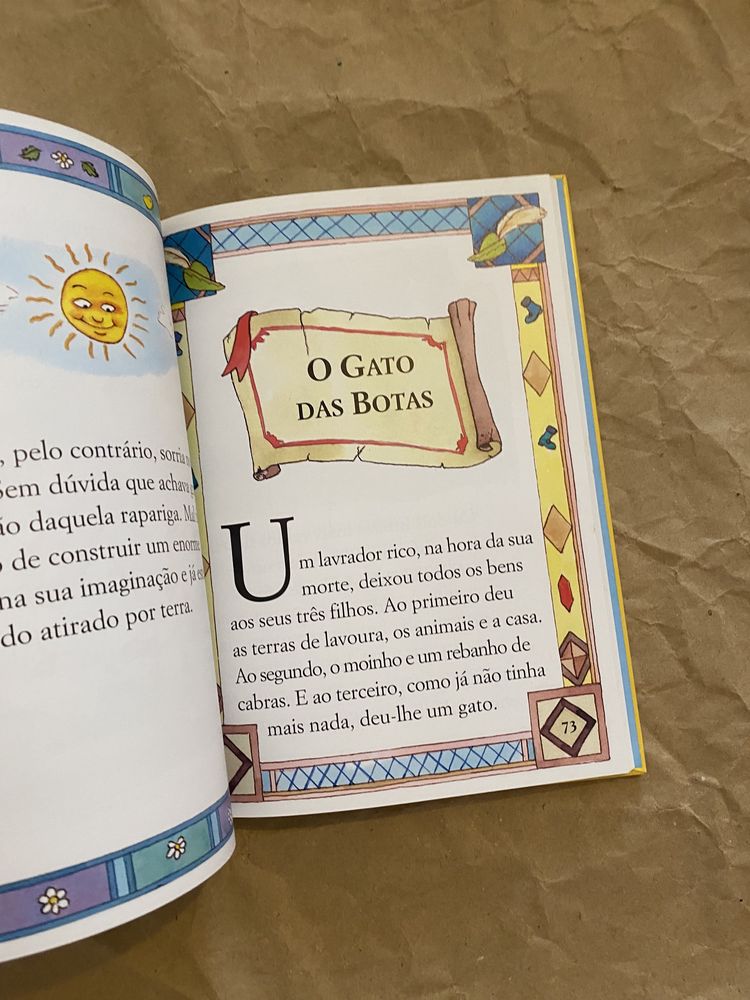 , pelo contrário, sorria
Sem dúvida que achava
daquela rapariga.
de construir um enorme
na sua imaginação e já
do atirado por terra.
O GATO
DAS BOTAS
Um lavrador rico, na hora da sua
morte, deixou todos os bens
aos seus três filhos. Ao primeiro deu
as terras de lavoura, os animais e a casa.
Ao segundo, o moinho e um rebanho de
cabras. E ao terceiro, como já não tinha
mais nada, deu-lhe um gato.
73